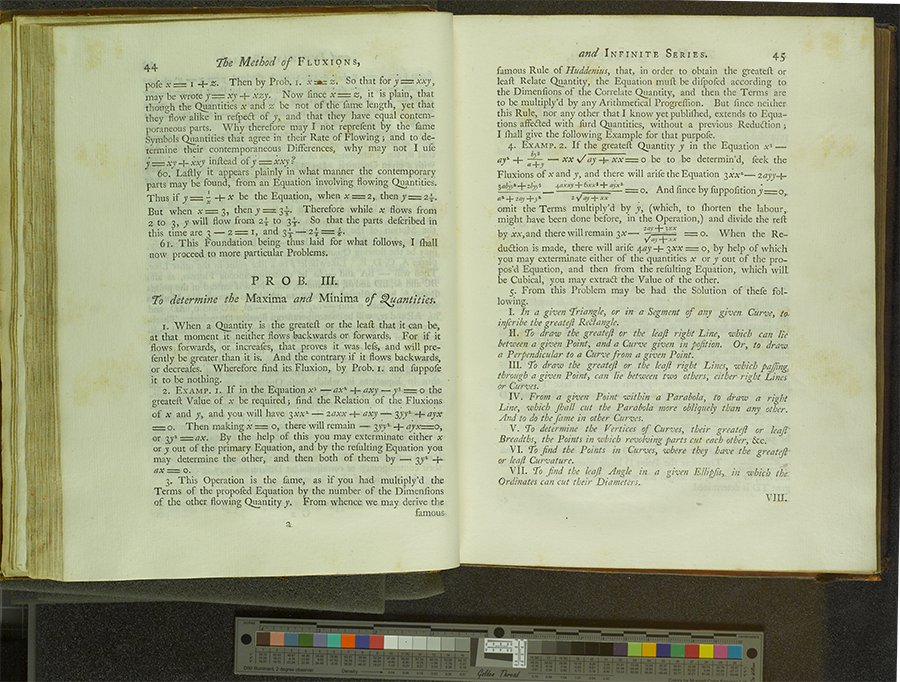 44 The Method of FLUXIONS,
pose x = 1 + z. Then by Prob. 1. ẋ = ż. So that for ẏ = ẋxy,
may be wrote ẏ = ẋy + ẋzy. Now since ẋ = ż, it is plain, that
though the Quantities x and z be not of the same length, yet that
they flow alike in respect of y, and that they have equal contem-
poraneous parts. Why therefore may I not represent by the same
Symbols Quantities that agree in their Rate of Flowing; and to de-
termine their contemporaneous Differences, why may not I use
ẏ = ẋy + ẋxy instead of ẏ = ẋxy?
60. Lastly it appears plainly in what manner the contemporary
parts may be found, from an Equation involving flowing Quantities.
Thus if y = 1/x + x be the Equation, when x = 2, then y = 2½.
But when x = 3, then y = 3⅓. Therefore while x flows from
2 to 3, y will flow from 2½ to 3⅓. So that the parts described in
this time are 3 — 2 = 1, and 3⅓ — 2½ = ⅚.
61. This Foundation being thus laid for what follows, I shall
now proceed to more particular Problems.
PROB. III.
To determine the Maxima and Minima of Quantities.
1. When a Quantity is the greatest or the least that it can be,
at that moment it neither flows backwards or forwards. For if it
flows forwards, or increases, that proves it was less, and will pre-
sently be greater than it is. And the contrary if it flows backwards,
or decreases. Wherefore find its Fluxion, by Prob. 1. and suppose
it to be nothing.
2. EXAMP. 1. If in the Equation x³ — ax² + axy — y³ = 0 the
greatest Value of x be required; find the Relation of the Fluxions
of x and y, and you will have 3ẋx² — 2aẋx + aẋy — 3ẏy² + aẏx
= 0. Then making ẋ = 0, there will remain — 3ẏy² + aẏx = 0,
or 3y² = ax. By the help of this you may exterminate either x
or y out of the primary Equation, and by the resulting Equation you
may determine the other, and then both of them by — 3y² +
ax = 0.
3. This Operation is the same, as if you had multiply'd the
Terms of the proposed Equation by the number of the Dimensions
of the other flowing Quantity y. From whence we may derive the
famous
2
and INFINITE SERIES. 45
famous Rule of Huddenius, that, in order to obtain the greatest or
least Relate Quantity, the Equation must be disposed according to
the Dimensions of the Correlate Quantity, and then the Terms are
to be multiply'd by any Arithmetical Progression. But since neither
this Rule, nor any other that I know yet published, extends to Equa-
tions affected with surd Quantities, without a previous Reduction;
I shall give the following Example for that purpose.
4. EXAMP. 2. If the greatest Quantity y in the Equation x³ —
ay² + by³/(a+y) — xx√(ay + xx) = 0 be to be determin'd, seek the
Fluxions of x and y, and there will arise the Equation 3ẋx² — 2aẏy +
(3abẏy² + 2bẏy³)/(a² + 2ay + y²) — (4aẋxy + 6ẋx³ + aẏx²)/(2√(ay + xx)) = 0. And since by supposition ẏ = 0,
omit the Terms multiply'd by ẏ, (which, to shorten the labour,
might have been done before, in the Operation,) and divide the rest
by ẋx, and there will remain 3x — (2ay + 3xx)/√(ay + xx) = 0. When the Re-
duction is made, there will arise 4ay + 3xx = 0, by help of which
you may exterminate either of the quantities x or y out of the pro-
pos'd Equation, and then from the resulting Equation, which will
be Cubical, you may extract the Value of the other.
5. From this Problem may be had the Solution of these fol-
lowing.
I. In a given Triangle, or in a Segment of any given Curve, to
inscribe the greatest Rectangle.
II. To draw the greatest or the least right Line, which can lie
between a given Point, and a Curve given in position. Or, to draw
a Perpendicular to a Curve from a given Point.
III. To draw the greatest or the least right Lines, which passing
through a given Point, can lie between two others, either right Lines
or Curves.
IV. From a given Point within a Parabola, to draw a right
Line, which shall cut the Parabola more obliquely than any other.
And to do the same in other Curves.
V. To determine the Vertices of Curves, their greatest or least
Breadths, the Points in which revolving parts cut each other, &c.
VI. To find the Points in Curves, where they have the greatest
or least Curvature.
VII. To find the least Angle in a given Ellipsis, in which the
Ordinates can cut their Diameters.
VIII.
Density
Golden Thread